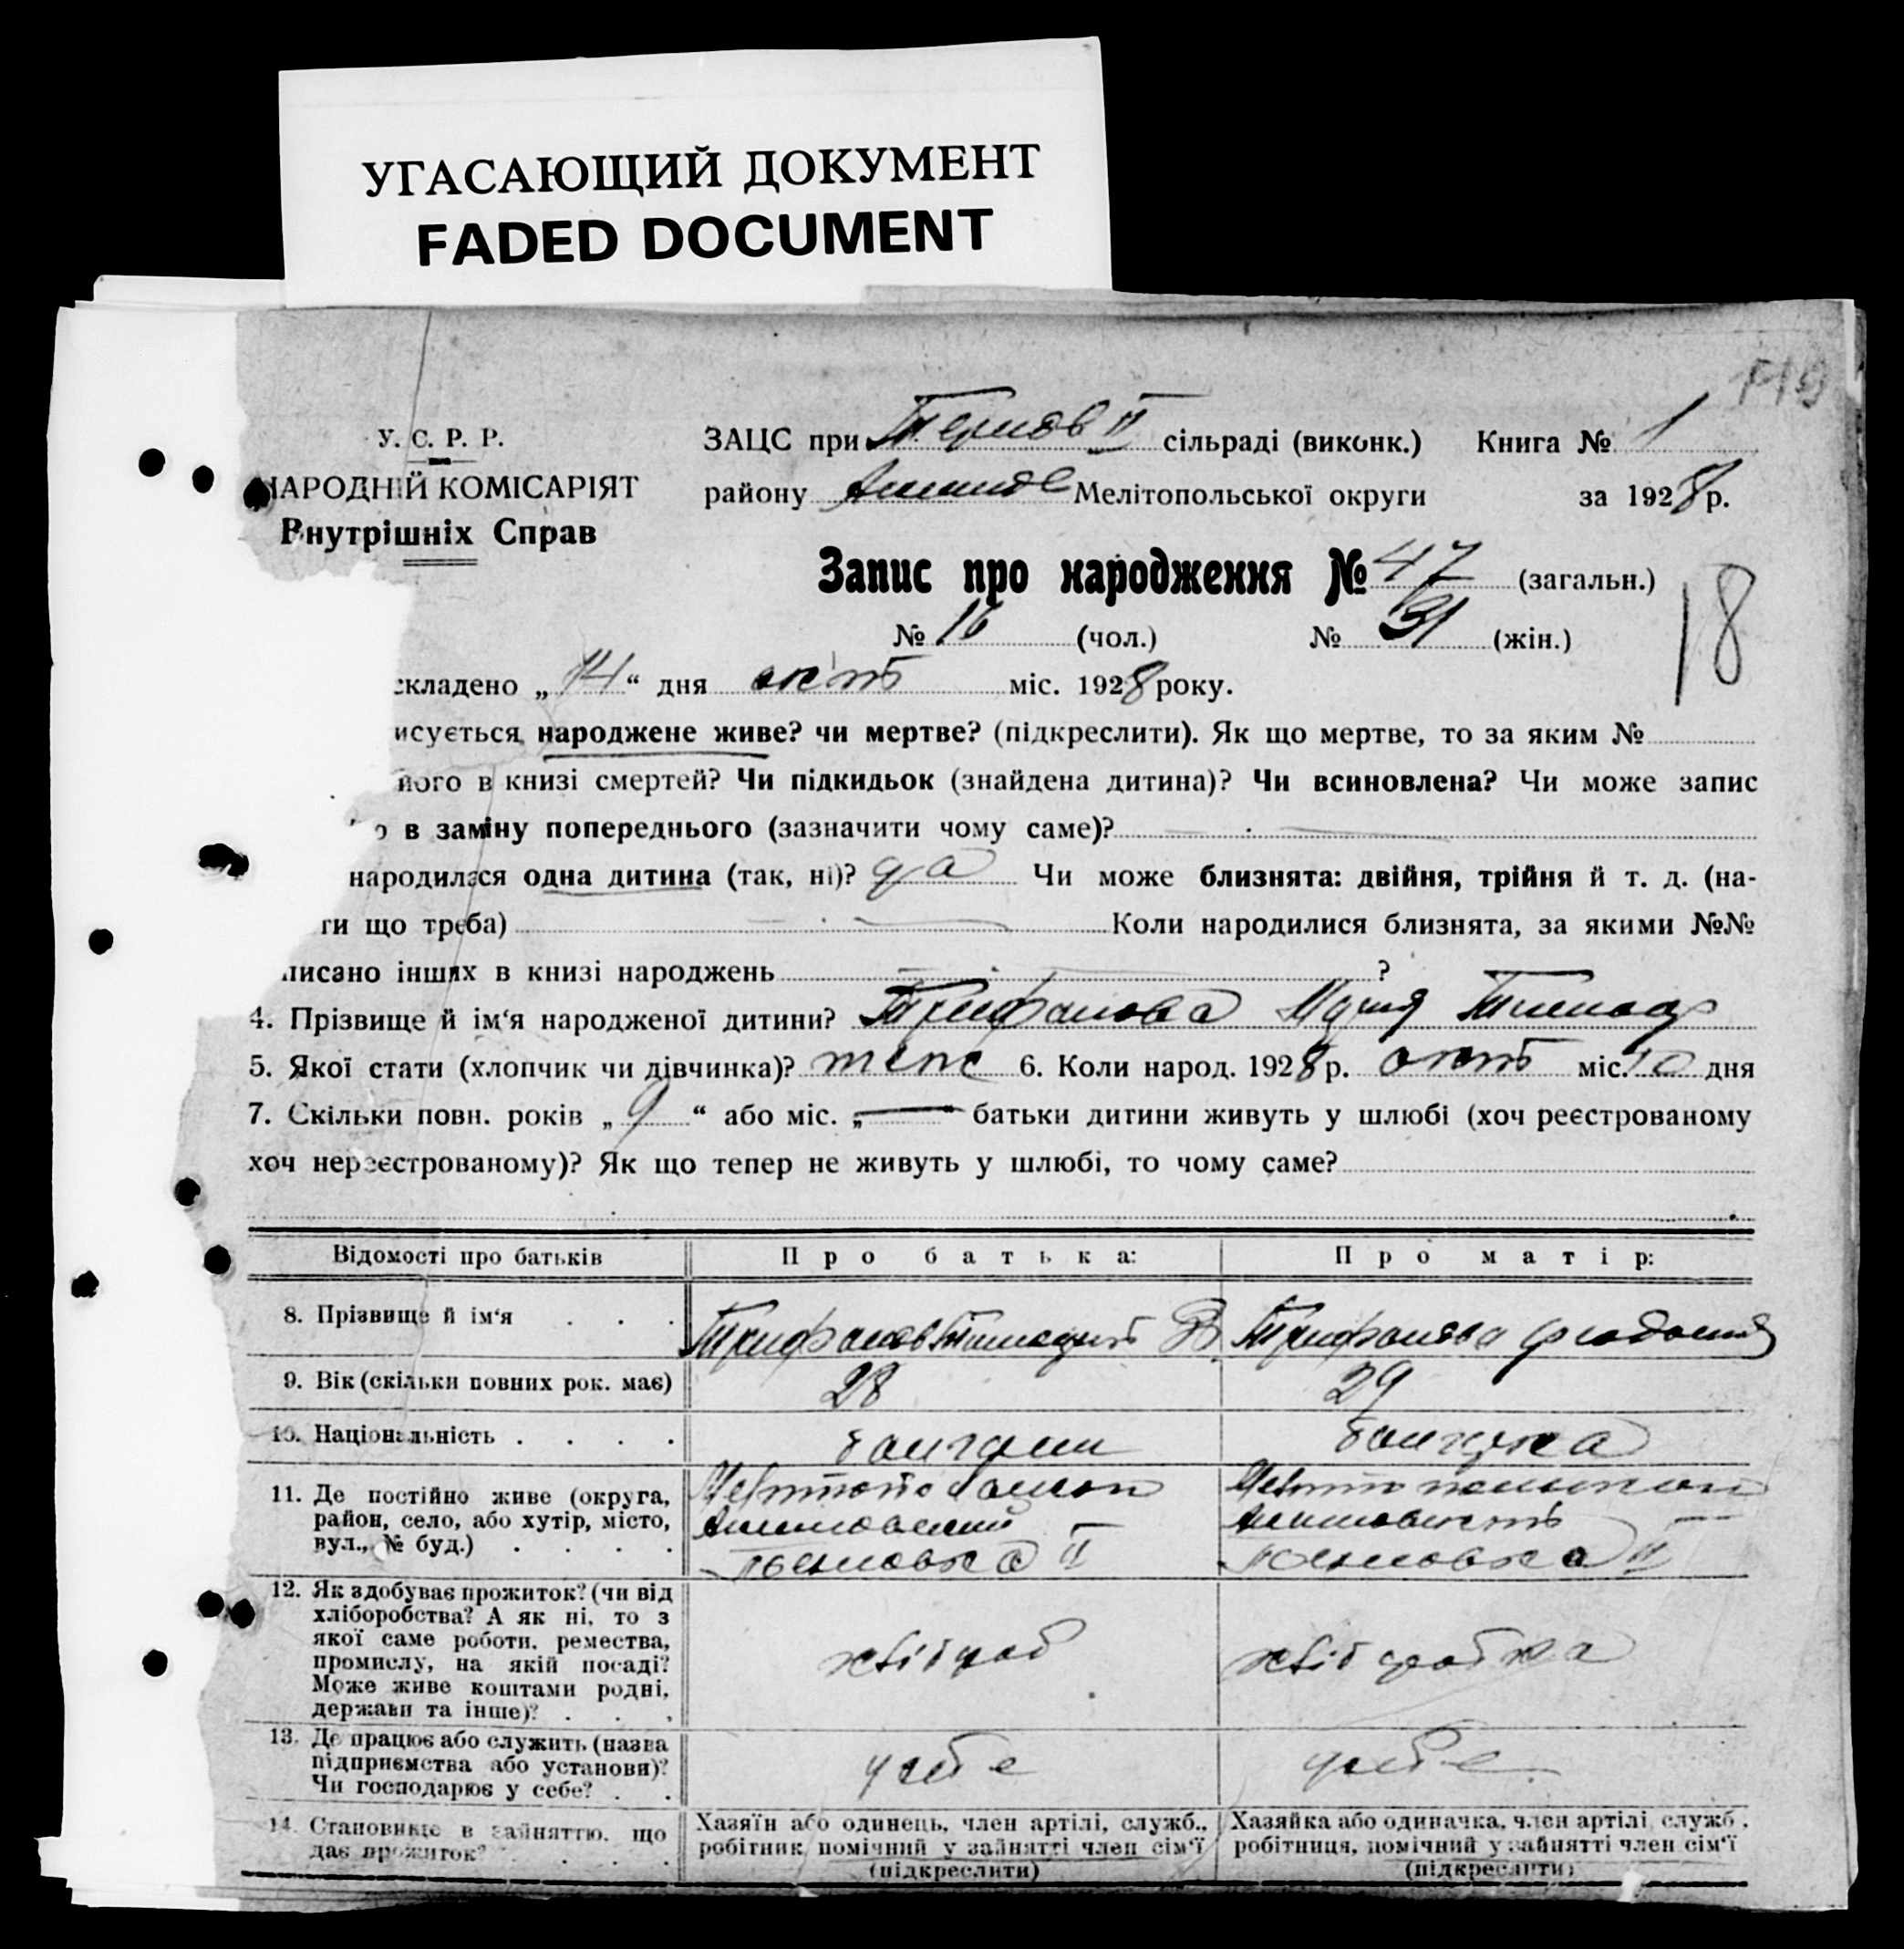 УГАСАЮЩИЙ ДОКУМЕНТ
FADED DOCUMENT
У. С. Р. Р.
НАРОДНІЙ КОМІСАРІЯТ
Внутрішніх Справ
ЗАЦС при II сільраді (виконк.) Книга № 1
району Акимов Мелітопольської округи за 1928 р.
Запис про народження № 47 (загальн.)
№ 16 (чол.) № 31 (жін.)
18
складено „14“ дня окт міс. 1928 року.
исується народжене живе? чи мертве? (підкреслити). Як що мертве, то за яким №
його в книзі смертей? Чи підкидьок (знайдена дитина)? Чи всиновлена? Чи може запис
о в заміну попереднього (зазначити чому саме)?
народилася одна дитина (так, ні)? да Чи може близнята: двійня, трійня й т. д. (на-
ти що треба) Коли народилися близнята, за якими №№
писано інших в книзі народжень ?
4. Прізвище й ім‘я народженої дитини? Трифанова
5. Якої стати (хлопчик чи дівчинка)? женс 6. Коли народ. 1928 р. окт міс. 10 дня
7. Скільки повн. років „9“ або міс. „—“ батьки дитини живуть у шлюбі (хоч реєстрованому
хоч нереєстрованому)? Як що тепер не живуть у шлюбі, то чому саме?
Відомості про батьків Про батька: Про матір:
8. Прізвище й ім‘я . . . Трифанов Трифанова
9. Вік (скільки повних рок. має) 28 29
10. Національність . . . . болгарин болгарка
11. Де постійно живе (округа,
район, село, або хутір, місто,
вул., № буд.) . . . .
Акимовский —
II II
12. Як здобуває прожиток? (чи від
хліборобства? А як ні, то з
якої саме роботи, ремества,
промислу, на якій посаді?
Може живе коштами родні,
держави та інше)? . . .
хлібороб хліборобка
13. Де працює або служить (назва
підприємства або установи)?
Чи господарює у себе? . .
у себе у себе
14. Становище в зайняттю, що
дає прожиток? . . . .
Хазяїн або одинець, член артілі, служб.,
робітник, помічний у зайнятті член сім‘ї
(підкреслити)
Хазяйка або одиначка, член артілі, служб.,
робітниця, помічний у зайнятті член сім‘ї
(підкреслити)